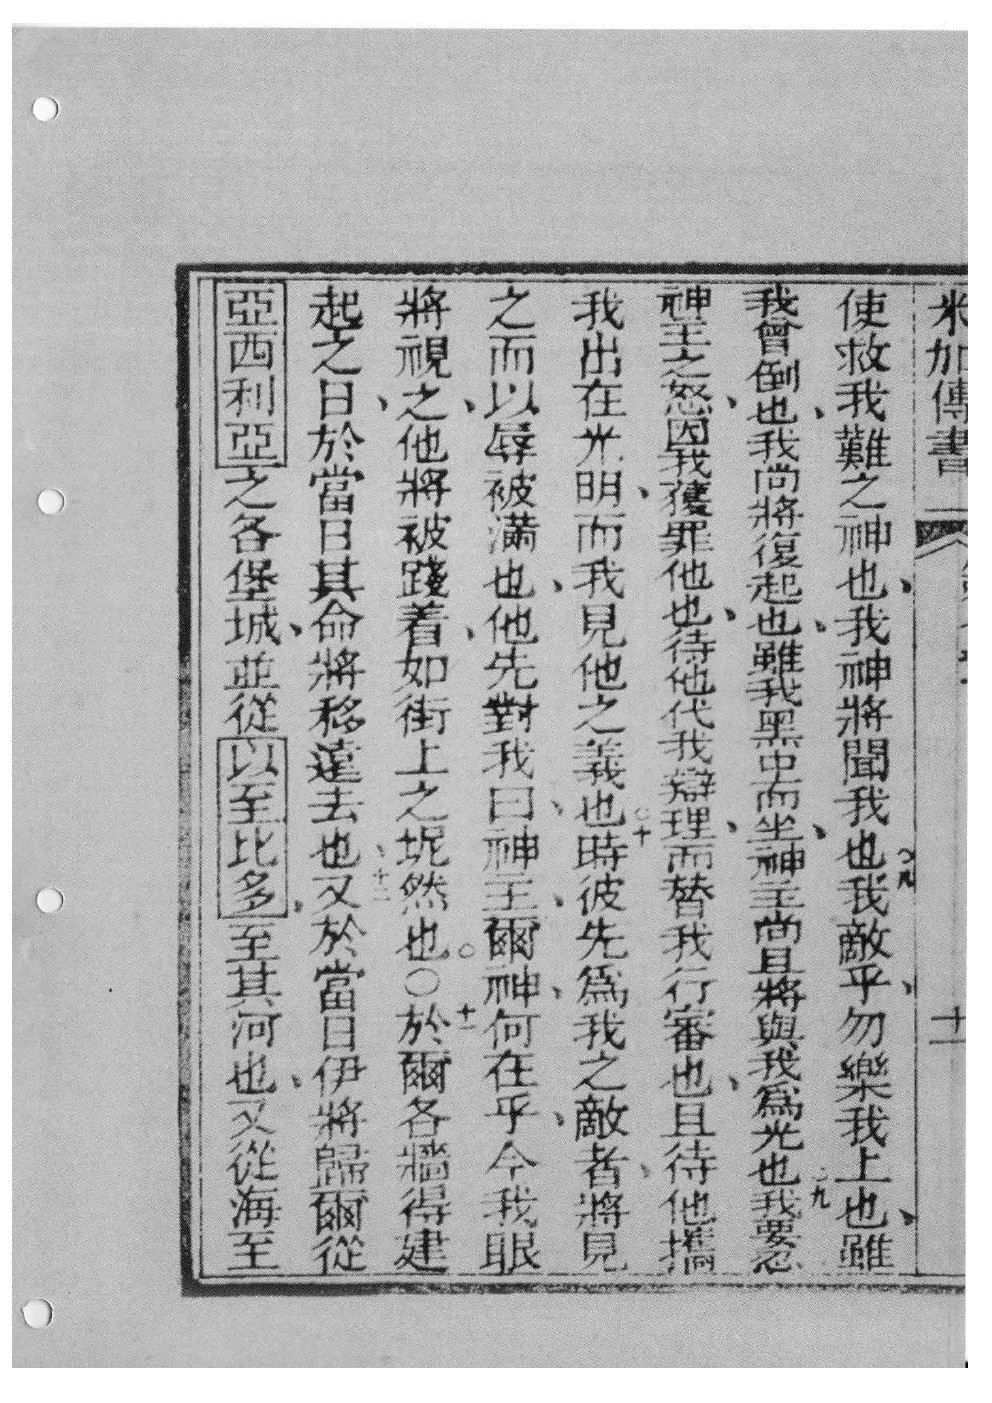 米加傳書 十一
使救我難之神也我神將聞我也八我敵乎勿樂我上也雖
我曾倒也我尚將復起也雖我黑中而坐神主尚且將與我為光也九我要忍
神主之怒因我獲罪他也待他代我辯理而替我行審也且待他攜
我出在光明而我見他之義也十時彼先為我之敵者將見
之而以辱被滿也他先對我曰神主爾神何在乎今我眼
將視之他將被踐着如街上之坭然也○十一於爾各牆得建
起之日於當日其命將移遠去也十二又於當日伊將歸爾從
亞西利亞之各堡城並從以至比多至其河也又從海至